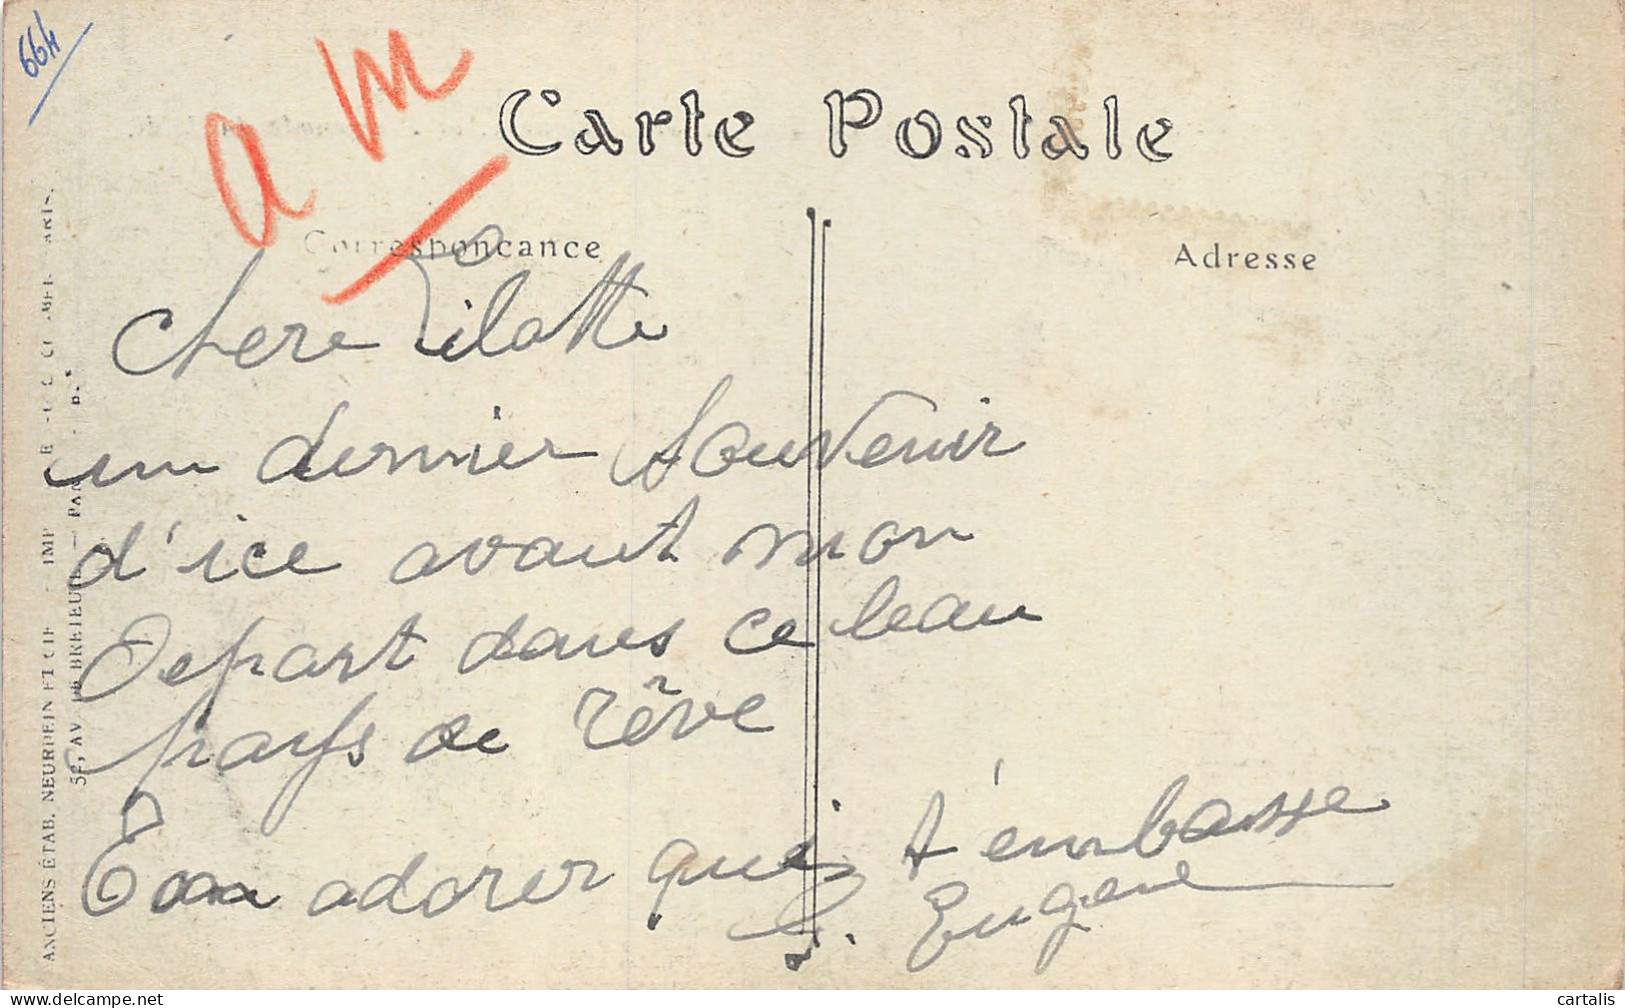 664
a m
Carte Postale
Correspondance
Adresse
Chere Lilotte
un dernier souvenir
d'ice avant mon
Depart dans ce beau
pays de rêve
Ton adorer qui t'embasse
G. Eugene
ANCIENS ÉTAB. NEURDEIN ET CIE
52, AV. DE BRETEUIL
delcampe.net
cartalis